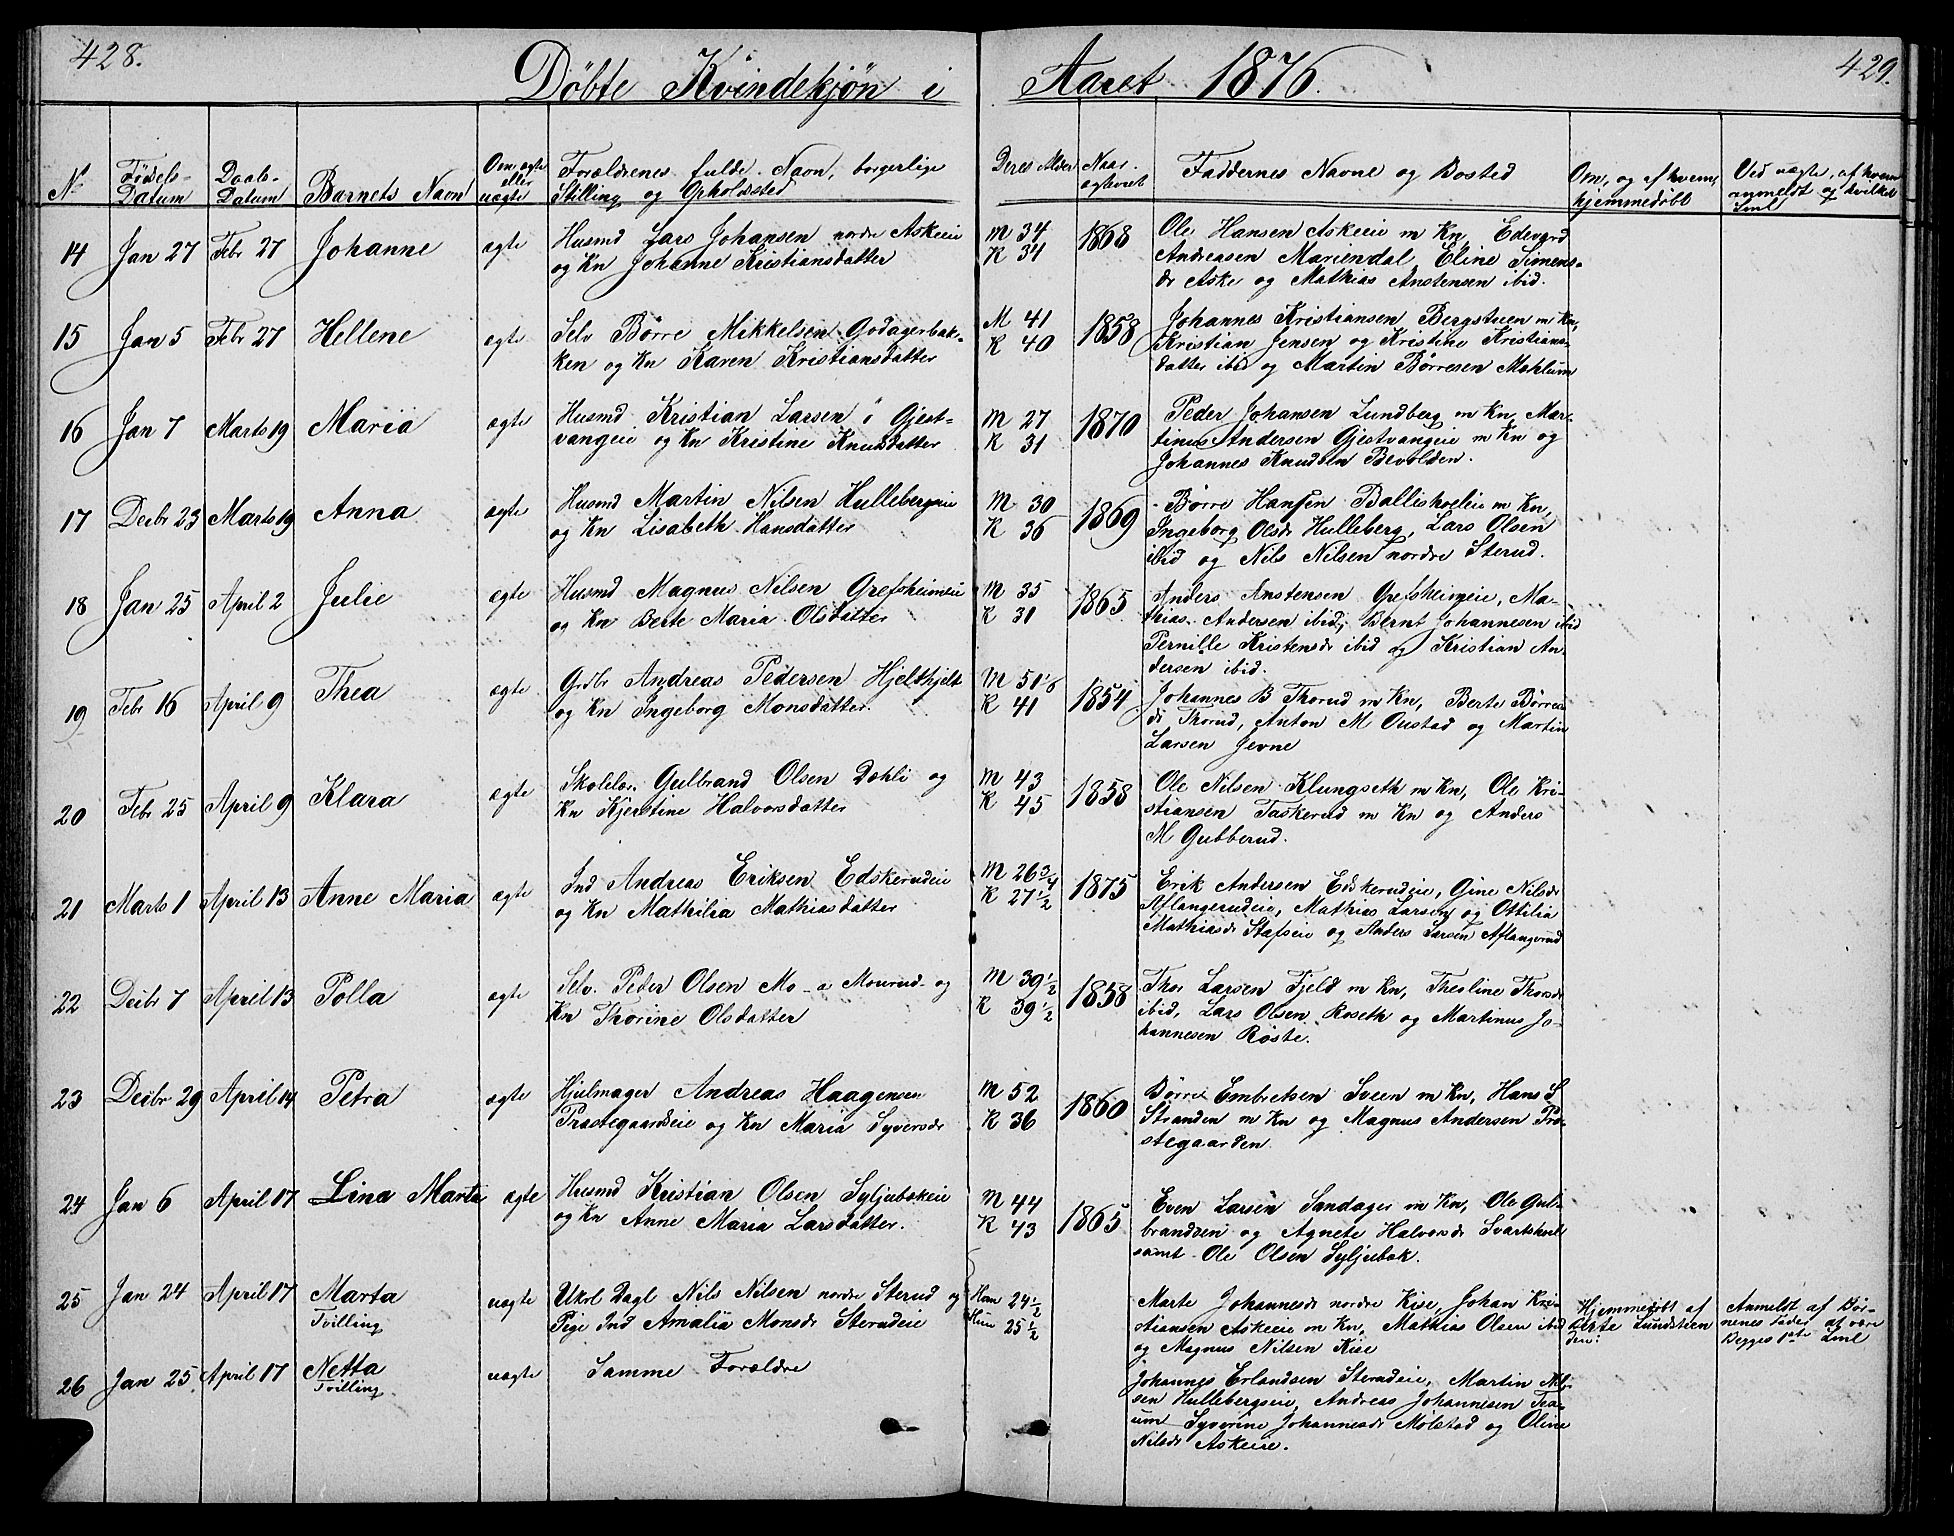 428.
Døbte Kvindekjøn i Aaret 1876.
429.
No
Fødsels-Datum
Daabs-Datum
Barnets Navn
Om ægte eller uægte
Forældrenes fulde Navn, borgerlige Stilling og Opholdssted
Deres Alder
Naar
Faddernes Navne og Bosted
Om, og af hvem, hjemmedøbt
Ved uægte, af hvem anmeldt og hvilket Leml
14 Jan 27 Febr 27 Johanne ægte
Husmd Lars Johansen nordre Askeeie
og Kn Johanne Kristiansdatter
M 34
K 34
1868
Ole Hansen Askeeie m Kn, Edevard
Andreasen Mariendal, Eline Simens-
dr Aske og Mathias Anstensen ibid.
15 Jan 5 Febr 27 Hellene ægte
Selv Børre Mikkelsen Godagerbak-
ken og Kn Karen Kristiansdatter
M 41
K 40
1858
Johannes Kristiansen Bergstuen m Kn,
Kristian Jensen og Kristine Kristians-
datter ibid og Martin Børresen Mæhlum
16 Jan 7 Marts 19 Maria ægte
Husmd Kristian Larsen i Gjest-
vangeie og Kn Kristine Knudsdatter
M 27
K 31
1870
Peder Johansen Lundberg m Kn, Mar-
tinus Andersen Gjestvangeie m Kn og
Johannes Knudsen Bevolden.
17 Decbr 23 Marts 19 Anna ægte
Husmd Martin Nilsen Hullebergeie
og Kn Lisabeth Hansdatter
M 30
K 36
1869
Børre Hansen Ballishoeleie m Kn,
Ingeborg Olsdr Hulleberg, Lars Olsen
ibid og Nils Nilsen nordre Sterud.
18 Jan 25 April 2 Julie ægte
Husmd Magnus Nilsen Grefsheimeie
og Kn Berte Maria Olsdatter
M 35
K 31
1865
Anders Anstensen Grefsheimeie, Ma-
thias Andersen ibid, Bernt Johannesen ibid
Pernille Kristensdr ibid og Kristian An-
dersen ibid.
19 Febr 16 April 9 Thea ægte
Grdbr Andreas Pedersen Hjelthjelt
og Kn Ingeborg Monsdatter
M 51 1/6
K 41
1854
Johannes B Thorud m Kn, Berte Børres
dr Thorud, Anton M Oustad og Martin
Larsen Jevne
20 Febr 25 April 9 Klara ægte
Skolelær. Gulbrand Olsen Dæhli og
Kn Kjerstine Halvorsdatter
M 43
K 45
1858
Ole Nilsen Klungseth m Kn, Ole Kri-
stiansen Taskerud m Kn og Anders
M Gubberud.
21 Marts 1 April 13 Anne Maria ægte
Ind Andreas Eriksen Edskerudeie
og Kn Mathilia Mathiasdatter
M 26 3/4
K 27 1/2
1875
Erik Andersen Edskerudeie, Gine Nilsdr
Aflangerudeie, Mathias Larsen og Ottilia
Mathiasdr Stafseie og Anders Larsen Aflangerud
22 Decbr 7 April 13 Polla ægte
Selv. Peder Olsen Mo - a Mourud og
Kn Thorine Olsdatter
M 39 1/2
K 39 1/2
1858
Thor Larsen Fjeld m Kn, Theoline Thorsdr
ibid, Lars Olsen Roseth og Martinus Jo-
hannesen Røste.
23 Decbr 29 April 14 Petra ægte
Hjulmager Andreas Haagensen
Præstegaardseie og Kn Maria Syversdr
M 52
K 36
1860
Børre Embretsen Sveen m Kn, Hans S
Stranden m Kn og Magnus Andersen Præ-
stegaarden.
24 Jan 6 April 17 Lina Marta ægte
Husmd Kristian Olsen Syljubakeie
og Kn Anne Maria Larsdatter.
M 44
K 43
1865
Even Larsen Sandager m Kn, Ole Gul-
brandsen og Agnete Halvorsdr Svartskuel
samt Ole Olsen Syljubak.
25 Jan 24 April 17 Marta Tvilling uægte
Ukrl Dagl Nils Nilsen nordre Sterud og
Pige Ind Amalia Monsdr Sterudeie
Han 24 1/2
Hun 25 1/2
Marte Johannesdr nordre Kise, Johan Kri-
stiansen Askeeie m Kn, Mathias Olsen ibid
og Magnus Nilsen Kise
Hjemmedøbt af
Berte Lundsteen
Anmeldt af Bør-
nenes Fader at være
Begges 1ste Leml
26 Jan 25 April 17 Netta Tvilling uægte
Samme Forældre
Johannes Erlandsen Sterudeie, Martin Nil-
sen Hullebergseie, Andreas Johannesen
Syverine Johannesdr Molstad og Oline
Nilsdr Askeeie.